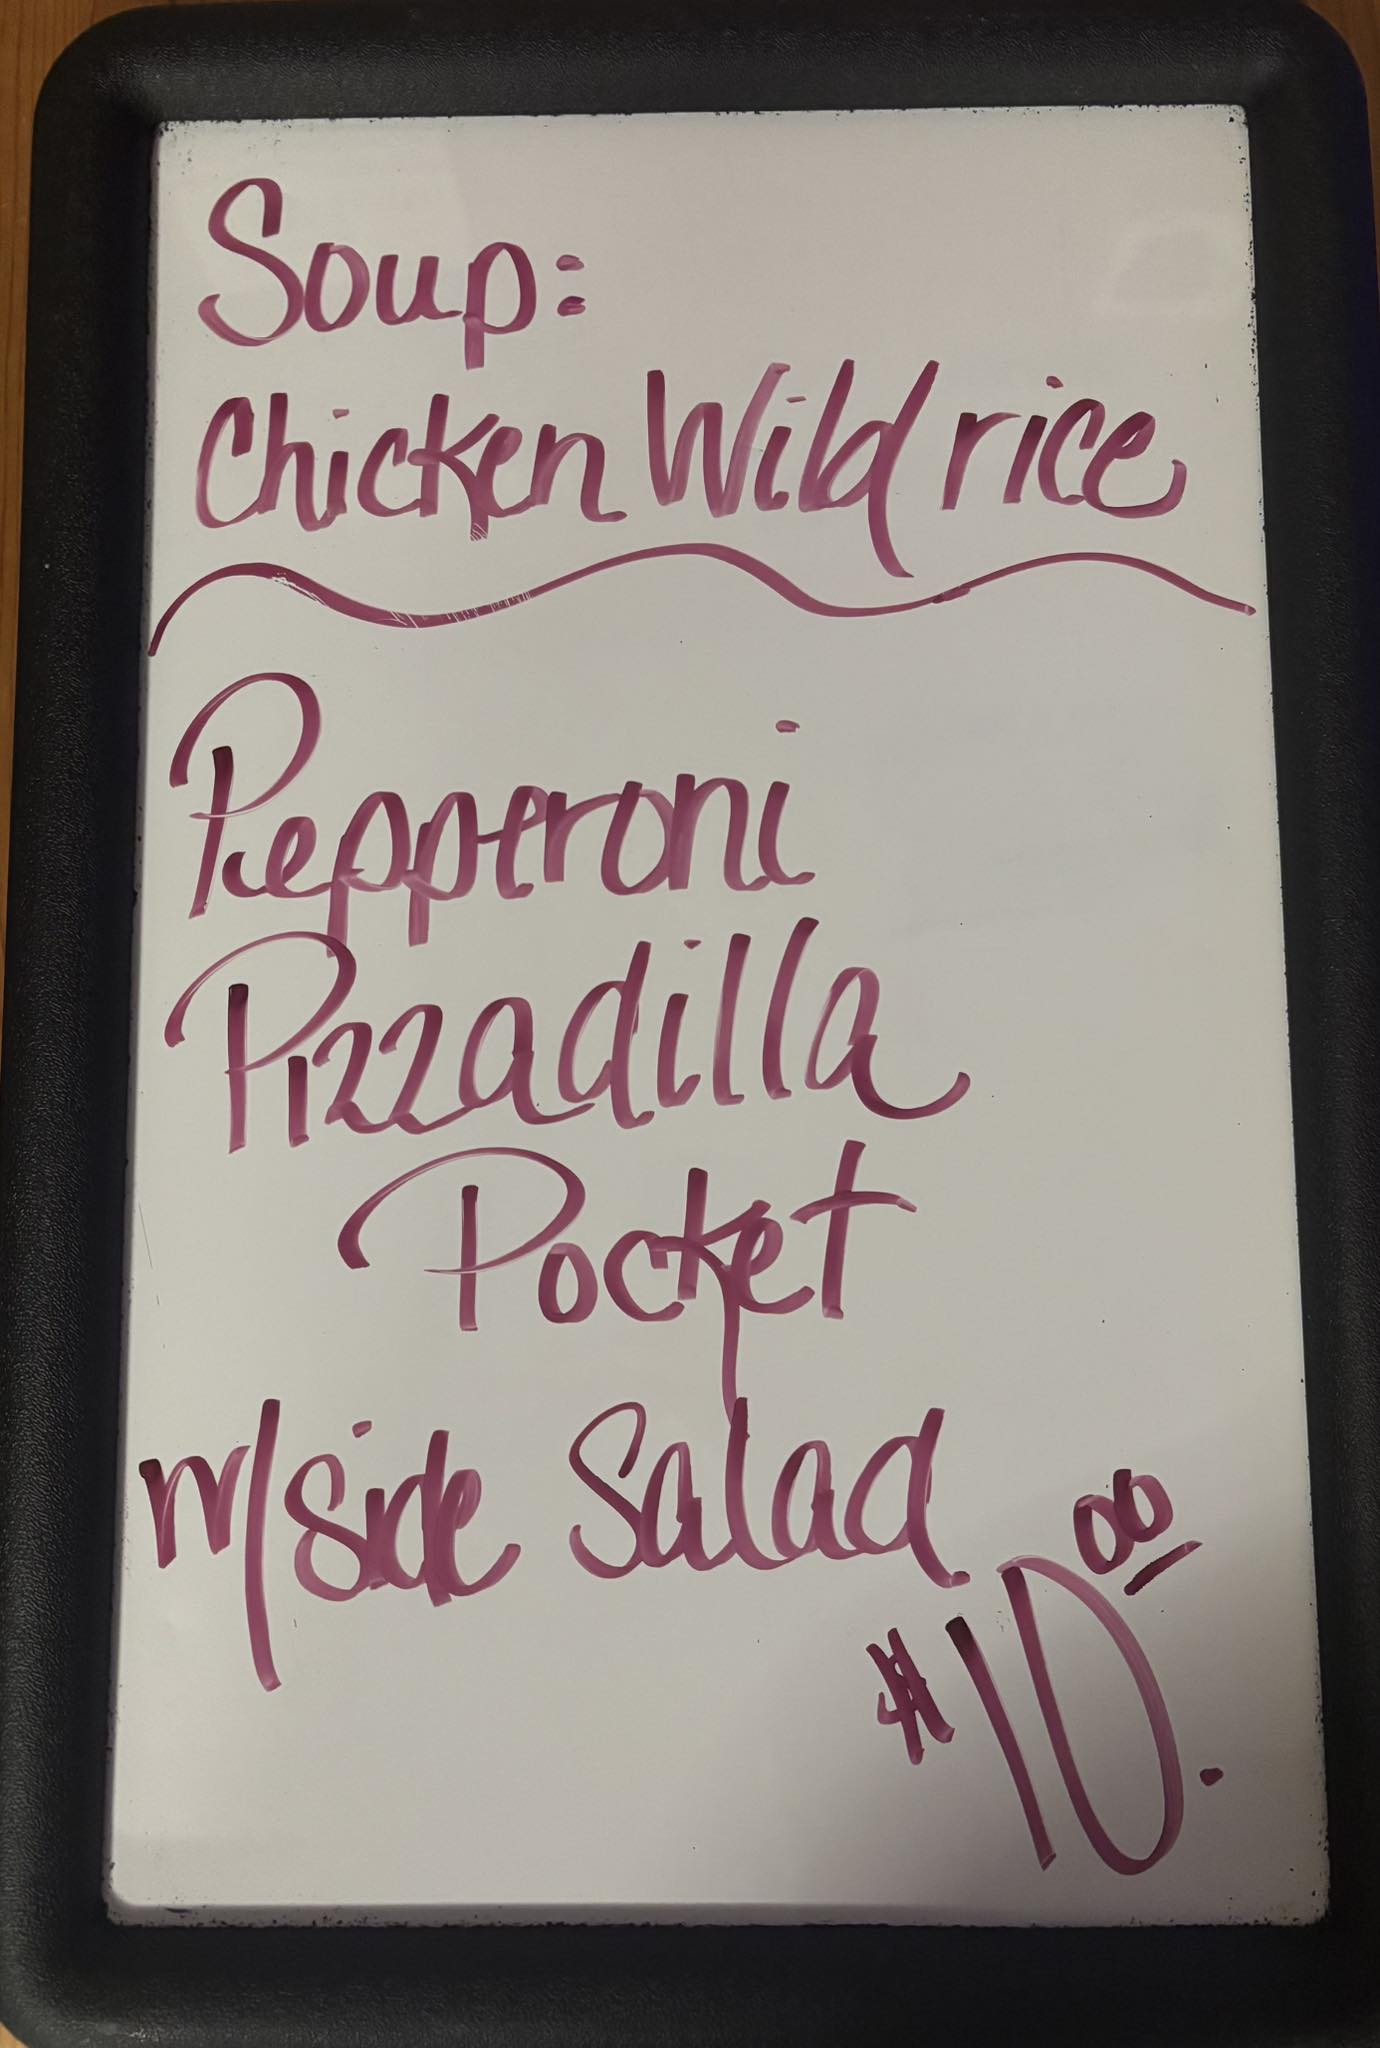 Soup:
Chicken Wild rice
Pepperoni
Pizzadilla
Pocket
w/side Salad
$10.00